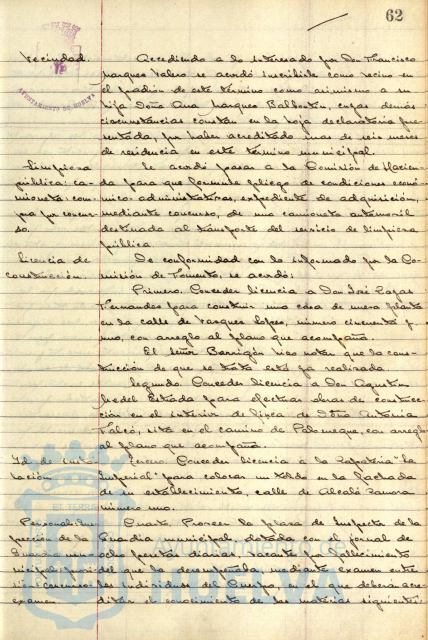 62
Vecindad.
AYUNTAMIENTO DE HUELVA
Accediendo a lo interesado por Don Francisco
Marques Valero se acordó inscribirle como vecino en
el padrón de este término como asimismo a su
hija Doña Ana Marques Ballester, cuyas demás
circunstancias constan en la hoja declaratoria pre-
sentada, por haber acreditado mas de seis meses
de residencia en este término municipal.
Limpieza
pública: ca-
mioneta: com-
pra por concur-
so.
Se acordó pasar a la Comisión de Hacien-
da para que formule pliego de condiciones econó-
mico-administrativas, expediente de adquisición,
mediante concurso, de una camioneta automóvil
destinada al transporte del servicio de limpieza
pública.
Licencia de
construcción.
De conformidad con lo informado por la Co-
misión de Fomento, se acordó:
Primero. Conceder licencia a Don José
Fernandez para construir una casa de nueva planta
en la calle de Vazquez Lopez, número cincuenta y
uno, con arreglo al plano que acompaña.
El Señor Barrigón hizo notar que la cons-
trucción de que se trata está ya realizada.
Segundo. Conceder licencia a Don Agustín
Estrada para efectuar obras de construc-
ción en el interior de finca de Doña Antonia
Falcó, sita en el camino de Palomeque, con arreglo
al plano que acompaña.
Id. de
Tercero. Conceder licencia a la Zapatería "La
Imperial" para colocar un toldo en la fachada
de su establecimiento, calle de Alcalá Zamora
número uno.
Personal: Ins-
pección de la
Guardia mu-
nicipal:
concurso
examen
Cuarto. Proveer la plaza de Inspector de la
Guardia municipal, dotada con el jornal de
ocho pesetas diarias, vacante por fallecimiento
del que la desempeñaba, mediante examen entre
los individuos del Cuerpo, en el que deberán acre-
ditar el conocimiento de las materias siguientes:
EL TERRIS
Ayuntamiento de
HUELVA